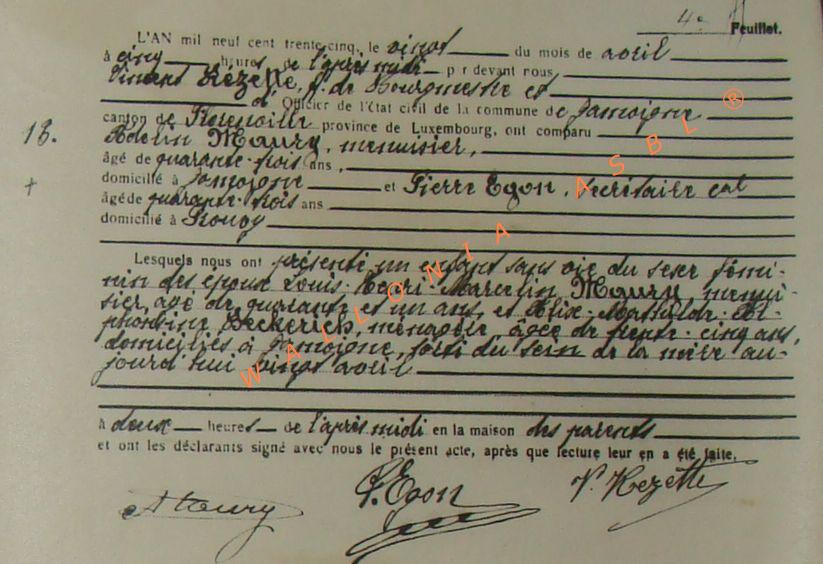 4e Feuillet.
L'AN mil neuf cent trente cinq, le vingt du mois de avril
à cinq heures de l'après midi par devant nous
Vincent Rezette, f. de Bourgmestre et
Officier de l'État civil de la commune de Jamoigne
canton de Florenville province de Luxembourg, ont comparu
13.
Adelin Maury, menuisier,
âgé de quarante-trois ans,
+
domicilié à Jamoigne et Pierre Egon, secrétaire cal
âgé de quarante-trois ans
domicilié à Prouvy
Lesquels nous ont présenté un enfant sans vie du sexe fémi-
nin des époux Louis-Henri-Marcelin Maury, menui-
sier, âgé de quarante et un ans, et Alix-Mathilde-Al-
phonsine Deckerich, ménagère, âgée de trente-cinq ans,
domiciliés à Jamoigne, sorti du sein de la mère au-
jourd'hui vingt avril
à deux heures de l'après midi en la maison des parents
et ont les déclarants signé avec nous le présent acte, après que lecture leur en a été faite.
A Maury P. Egon V. Rezette
WALLONIA ASBL ®